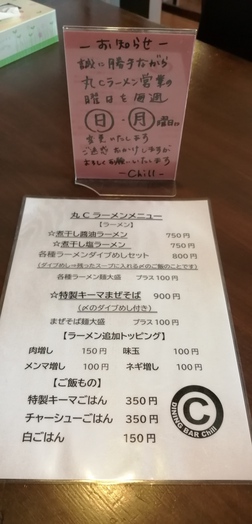 －お知らせ－
誠に勝手ながら
丸Cラーメン営業の
曜日を毎週
日・月曜日に
変更いたします
ご迷惑おかけしますが
よろしくお願いいたします
－Chill－
丸Cラーメンメニュー
【ラーメン】
☆煮干し醤油ラーメン 750円
☆煮干し塩ラーメン 750円
各種ラーメンダイブめしセット 800円
(ダイブめし→残ったスープに入れる〆のご飯のことです)
各種ラーメン麺大盛 プラス100円
☆特製キーマまぜそば 900円
(〆のダイブめし付き)
まぜそば麺大盛 プラス100円
【ラーメン追加トッピング】
肉増し 150円 味玉 100円
メンマ増し 100円 ネギ増し 100円
【ご飯もの】
特製キーマごはん 350円
チャーシューごはん 350円
白ごはん 150円
C
DINING BAR Chill